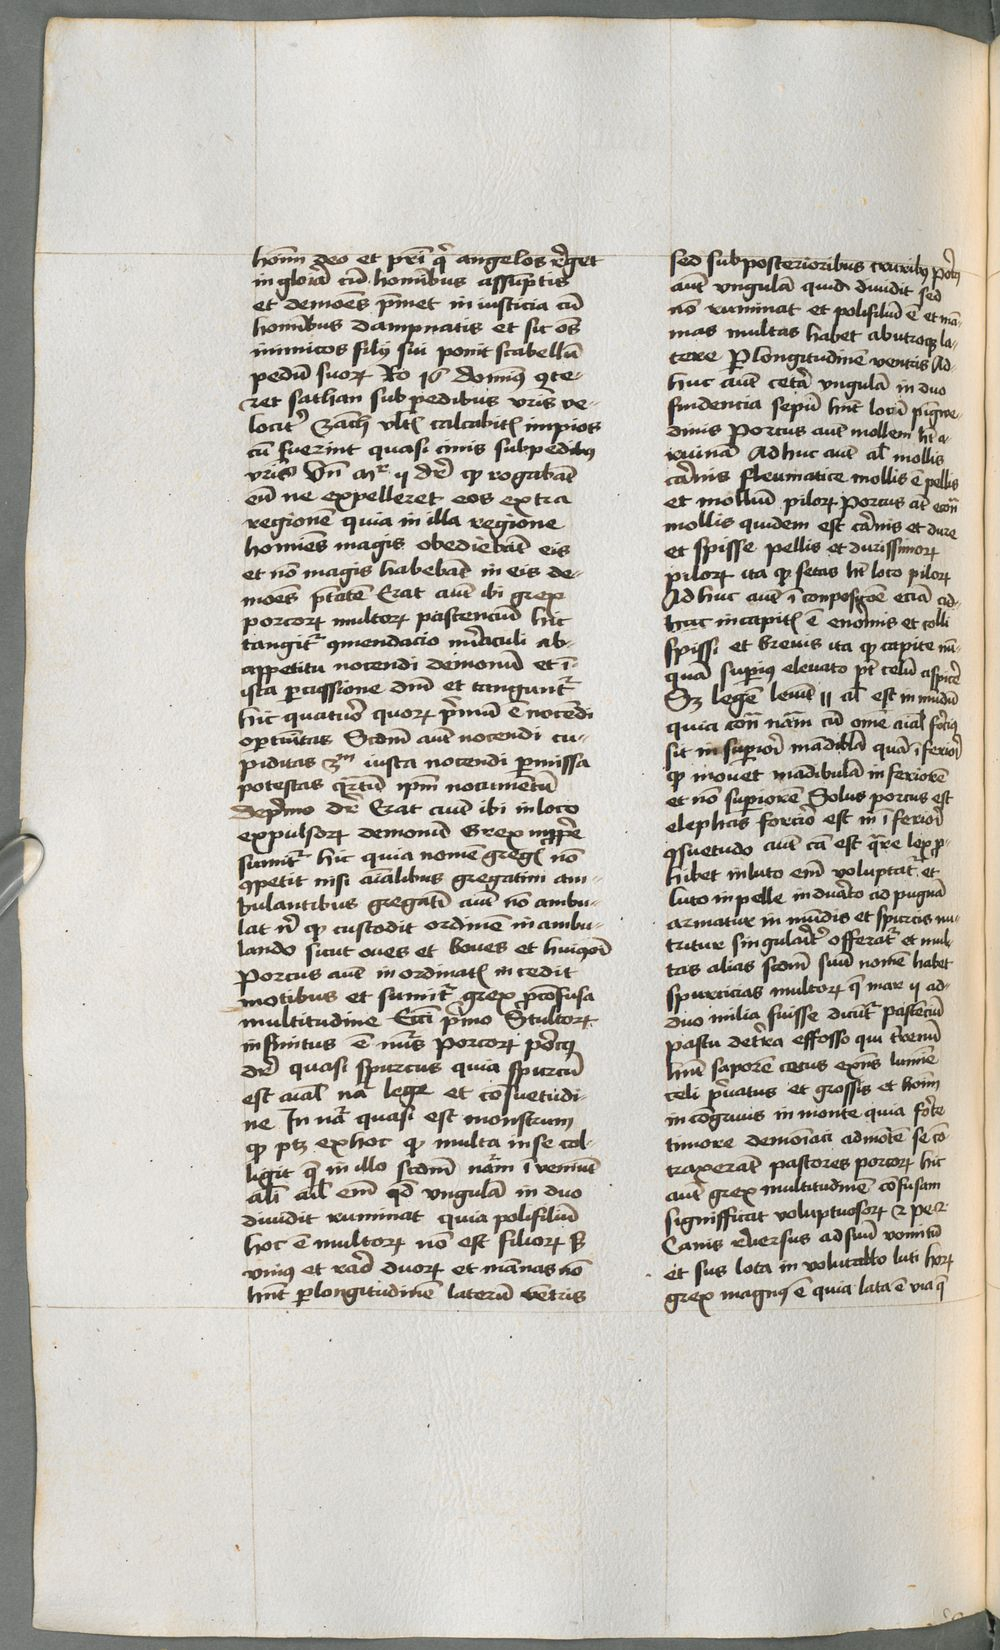 hoīni deo et pr̄i q̄ angelos r̄get
in gloriā cū hominibus assūptis
et demoēs p̄met in iusticia cū
hominibus dampnatis et sic os̄
inimicos filij sui ponit scabellū
pedū suoꝝ Ro 16 domin9 9te-
ret sathan sub pedibus vr̄is ve-
locit̄ calcabit̄ impios
cū fuerint quasi cinis sub pedib9
vr̄is Vn̄ ij dr̄ ꝙ rogabāt
eū ne expelleret eos extra
regionē quia in illa regione
homīes magis obediebāt eis
et nō magis habebāt in eis de-
moēs ptātē Erat autē ibi grex
porcoꝝ multoꝝ pascenciū hic
tangit̄ 9mendacio mīraculi ab
appetitu nocendi demonū et ī
ista ꝑcussione et tangunt̄
hic quatuor quoꝝ p̄mū ē nocēdi
oportūtas Scdm̄ autē nocendi cu-
piditas 3m iusta nocendi ꝑmissa
potestas quartū ipm̄ nocumentū
De p̄mo dr̄ Erat autē ibi in loco
expulsoꝝ demonū Grex
sumit̄ hic quia nomē greḡ nō
9petit nisi aīalibus gregatim am-
bulantibus gregatī autē nō ambu-
lat n̄ ꝙ custodit ordinē in ambu-
lando sicut oues et boues et huiꝰmōi
Porcus autē inordinat̄ incedit
motibus et sumit̄ grex p̄ confusa
multitudine Ecci p̄mo Stultoꝝ
infinitus ē nūs Porcoꝝ porc9
dr̄ quasi spurcus quia spurcū
est aīal nā lege et cōsuetudi-
ne In nā quasi est monstrum
ꝙ ptꝫ ex hoc ꝙ multa in se col-
ligit q̄ in illo scdm̄ nām īveniūt
aīl em̄ qd̄ vngulā in duo
diuidit ruminat quia polifiliū
hoc ē multoꝝ nō est filioꝝ
vnius et rarō duoꝝ et māmas nō
hn̄t ꝑ longitudinē laterū vētris
sed sub posterioribus cruribꝰ porcꝰ
autē vngulā quidē diuidit sed
nō ruminat et polifiliū ē et mā-
mas multas habet ab utroqꝫ la-
tere Per longitudinē ventris Ad-
huc autē cetera vngulā in duo
findencia sepū hn̄t locū pigwe-
dinis Porcus autē mollem hꝫ a-
ruinā Ad huc autē aīl mollis
carnis fleumatice mollis ē pellis
et molliū piloꝝ Porcus at̄ econ̄
mollis quidem est carnis et dure
et spisse pellis et durissimoꝝ
piloꝝ ita ꝙ setas hꝫ loco piloꝝ
Ad huc autē ī composicōe eciā ad-
huc in capit̄ ē enormis et colli
spissi et breuis ita ꝙ capite nū-
quā superius eleuato pt̄ celū aspicere
Sꝫ legē leuit̄ 11 aīl est inmūdū
quia con̄ nām cū omē aīal forcius
sit in superiori mandibla quā ī feriori
ꝙ mouet mandibulā inferiorē
et nō superiorē Solus porcus est
elephas forcior est in ī feriori
9suetudo autē cā est quare lex p̄-
hibet in luto em̄ voluptat̄ et
luto in pelle indurato ad pugnā
armatur in mūdis et spurcis nu-
tritur singularit̄ offerat̄ et mul-
tas alias scdm̄ suū nomē habet
spurcicias multoꝝ q̄ mar ij ad
duo milia fuisse dicūt̄ pastenciū
pastu de terra effosso qui terrenū
hn̄t saporē cetus exꝑs luminē
celi priuatus et grossis et hoīm
incongruus in monte quia forte
timore demoīaci ad mōtē se cō-
traxerāt pastores porcoꝝ hic
autē grex multitudinē cōfusam
significat voluptuosoꝝ 2 pe 2
Canis reuersus ad suū vomitū
et sus lota in volutabło luti horꝝ
grex magnꝰ ē quia lata ē via q̄